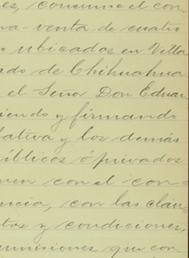 es, consume el con
va-venta de cuatro
ubicados en Villa
ado de Chihuahua
el Señor Don Eduar
iendo y firmando
lativa y los demás
úblicos ó privados
nen con el con
ncia, con las clau
tas y condiciones,
umisiones que con